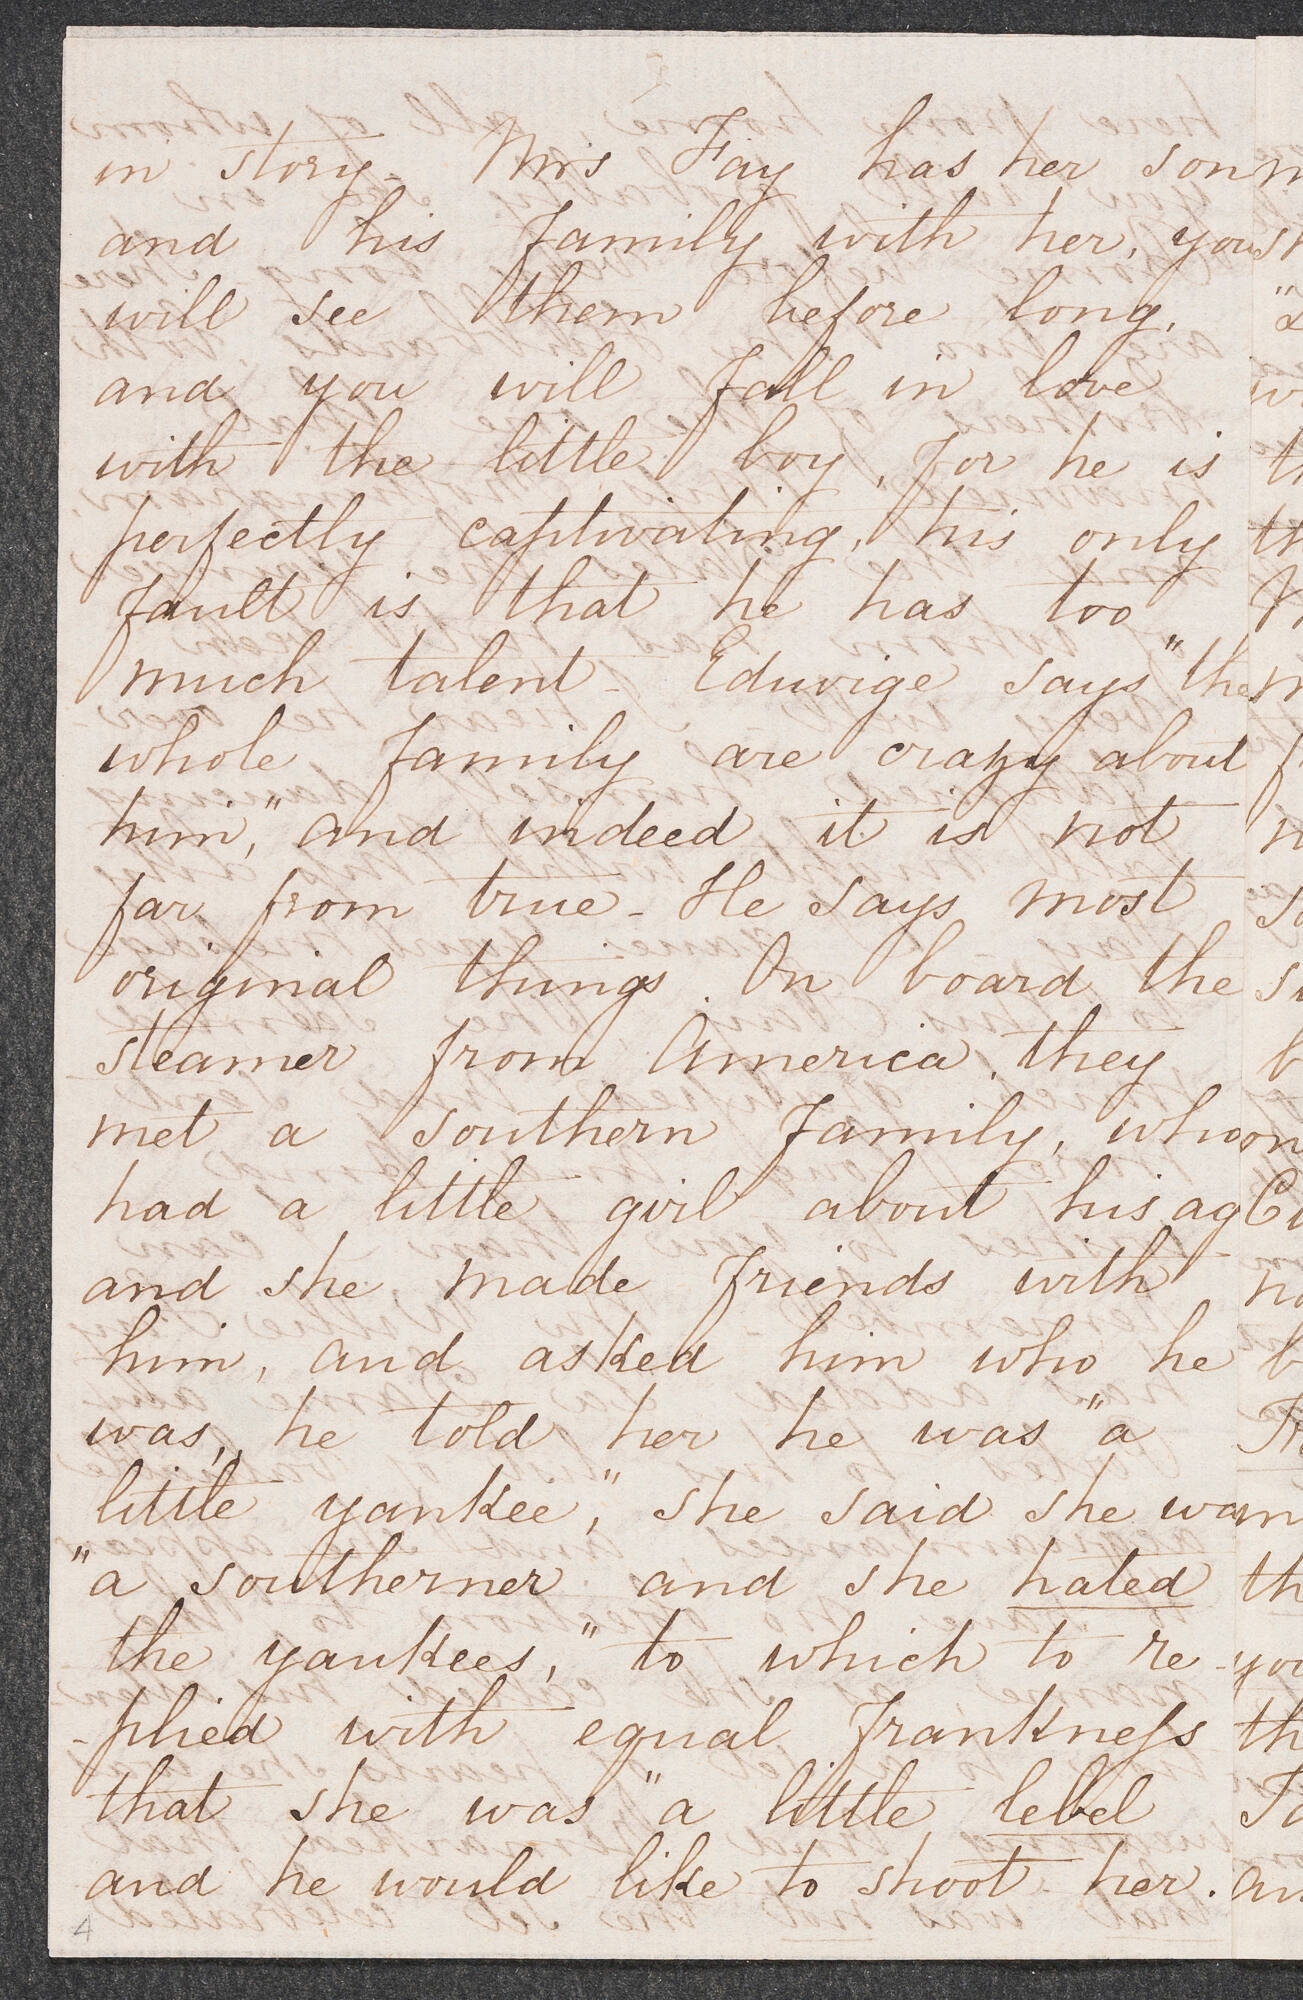 in story - Mrs Fay has her son
and his family with her, you
will see them before long,
and you will fall in love
with the little boy, for he is
perfectly captivating, his only
fault is that he has too
much talent - Eduvige says "the
whole family are crazy about
him," and indeed it is not
far from true - He says most
original things. On board the
steamer from America, they
met a southern family, who
had a little girl about his ag
and she made friends with
him, and asked him who he
was, he told her he was "a
little yankee," she said she was
"a southerner and she hated
the yankees," to which to re
-plied with equal frankness
that she was "a little lebel
and he would like to shoot her.
4